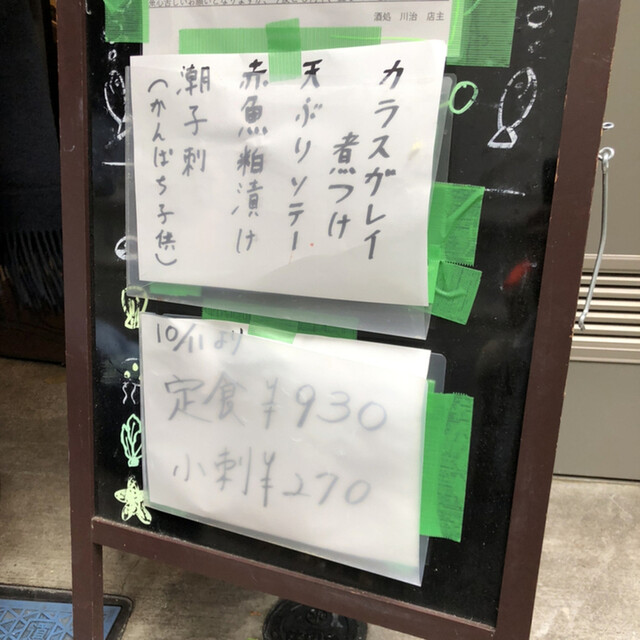 酒処 川治 店主
カラスガレイ
煮つけ
天ぶりソテー
赤魚粕漬け
潮子刺
(かんぱち子供)
10/11より
定食¥930
小刺¥270